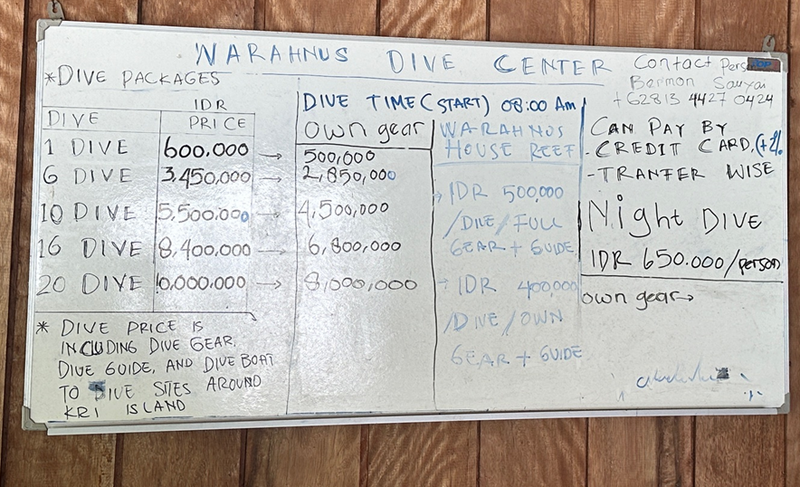 WARAHNUS DIVE CENTER
Contact Person
+62813 4427 0424
*DIVE PACKAGES
DIVE IDR PRICE
1 DIVE 600.000 →
6 DIVE 3.450,000 →
10 DIVE 5,500.000 →
16 DIVE 8,400.000 →
20 DIVE 10,000.000 →
* DIVE PRICE IS
INCLUDING DIVE GEAR,
DIVE GUIDE, AND DIVE BOAT
TO DIVE SITES AROUND
KRI ISLAND
DIVE TIME (START) 08:00 Am
own gear
500,000
2,850,000
4,500,000
6,800,000
8,000,000
WARAHNUS
HOUSE REEF
→ IDR 500,000
/DIVE/FULL
GEAR + GUIDE
→ IDR 400,000
/DIVE/OWN
GEAR + GUIDE
CAN PAY BY
- CREDIT CARD,
- TRANFER WISE
Night DIVE
IDR 650.000/person
own gear→